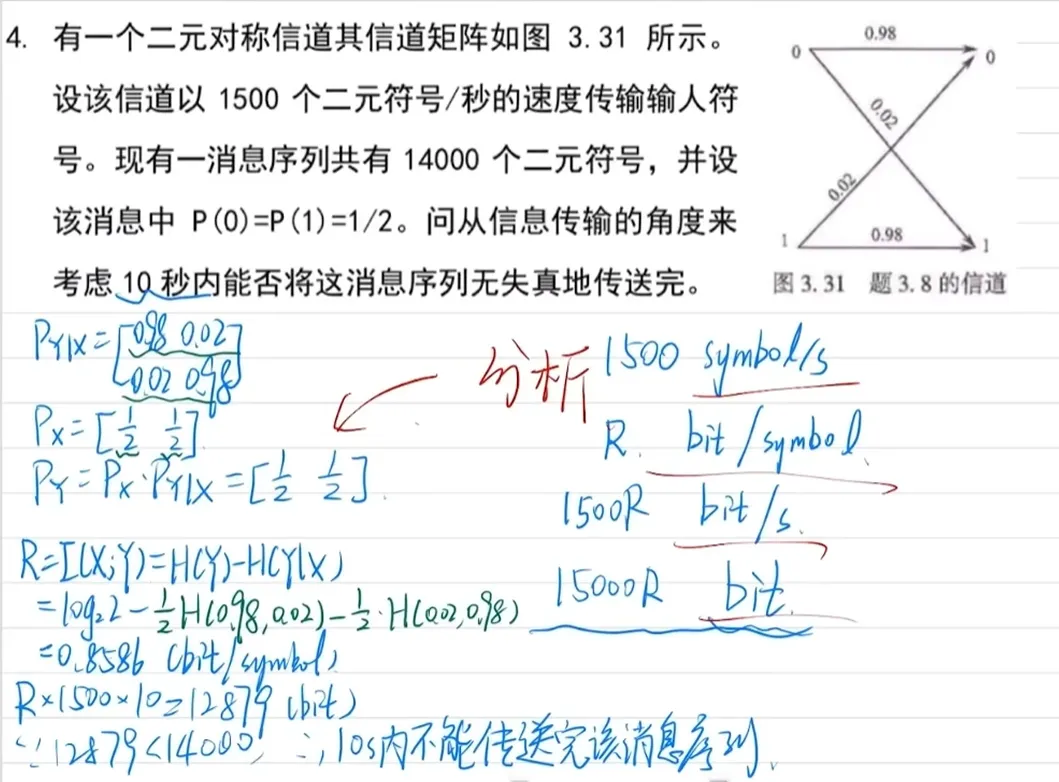 4. 有一个二元对称信道其信道矩阵如图 3.31 所示。
设该信道以 1500 个二元符号/秒的速度传输输人符
号。现有一消息序列共有 14000 个二元符号，并设
该消息中 P(0)=P(1)=1/2。问从信息传输的角度来
考虑 10 秒内能否将这消息序列无失真地传送完。
0.98
0
0
0.02
0.02
1
0.98
1
图 3.31 题 3.8 的信道
P_{Y|X}=[0.98 0.02
0.02 0.98]
P_X=[1/2 1/2]
P_Y=P_X·P_{Y|X}=[1/2 1/2].
分析
1500 symbol/s
R. bit/symbol.
1500R bit/s.
15000R bit.
R=I(X;Y)=H(Y)-H(Y|X)
=log₂2-1/2H(0.98,0.02)-1/2·H(0.02,0.98)
=0.8586 (bit/symbol)
R×1500×10=12879 (bit)
∵12879<14000 ∴10s内不能传送完该消息序列.